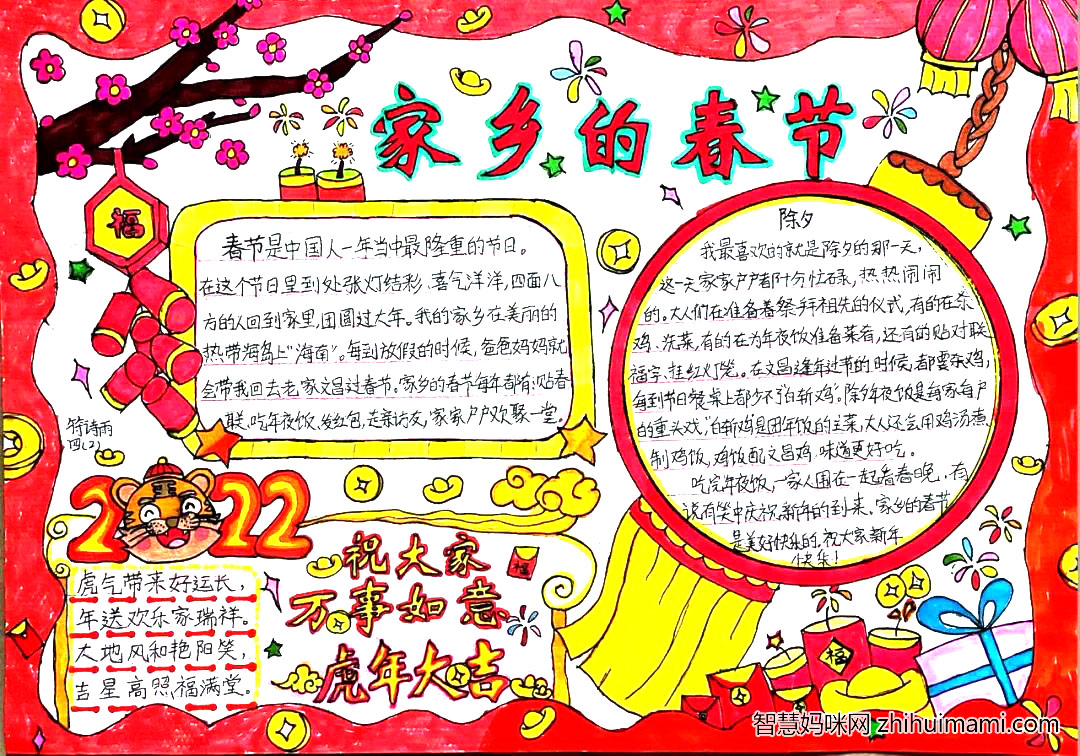 家乡的春节
福
春节是中国人一年当中最隆重的节日。
在这个节日里到处张灯结彩、喜气洋洋,四面八
方的人回到家里,团圆过大年。我的家乡在美丽的
热带海岛“海南”。每到放假的时候,爸爸妈妈就
会带我回去老家文昌过春节。家乡的春节每年都有:贴春
联、吃年夜饭、发红包、走亲访友,家家户户欢聚一堂。
除夕
我最喜欢的就是除夕的那一天,
这一天家家户户都十分忙碌,热热闹闹
的。大人们在准备着祭拜祖先的仪式,有的在杀
鸡、洗菜,有的在为年夜饭准备菜肴,还有的贴对联
福字、挂红灯笼。在文昌逢年过节的时候,都要杀鸡,
每到节日餐桌上都少不了“白斩鸡”。除夕年夜饭是每家每户
的重头戏,白斩鸡是团年饭的主菜,大人还会用鸡汤煮
制鸡饭,鸡饭配文昌鸡,味道更好吃。
吃完年夜饭,一家人围在一起看春晚,有
说有笑中庆祝新年的到来、家乡的春节
是美好快乐的,祝大家新年
快乐!
符诗雨
四(2)
2022
虎气带来好运长,
年送欢乐家瑞祥。
大地风和艳阳笑,
吉星高照福满堂。
祝大家
万事如意
虎年大吉
福
福
春
智慧妈咪网 zhihuimami.com